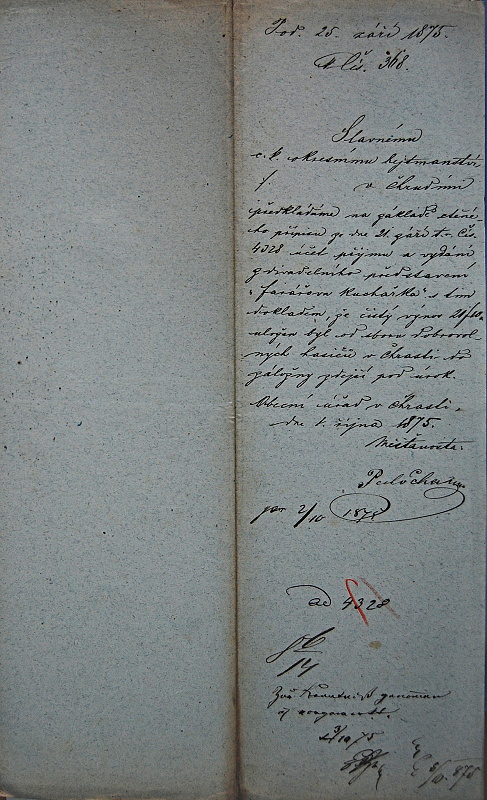 Pod. 25. září 1875.
Čís. 368.
Slavnému
c. k. okresnímu hejtmanství
v Chrudimi
předkládáme na základě ctěné-
ho přípisu ze dne 21. září t. r. Čís.
4328 účet příjmu a vydání
z divadelního představení
"Farářova Kuchařka" s tím
dokladem, že čistý výnos
uložen byl od sboru dobrovol-
ných hasičů v Chrasti do
záložny zdejší pod úrok.
Obecní úřad v Chrasti,
dne 1. října 1875.
Měšťanosta:
2/10 1875
ad 4328
14
Zur Kenntniß genommen
3/10 75
875